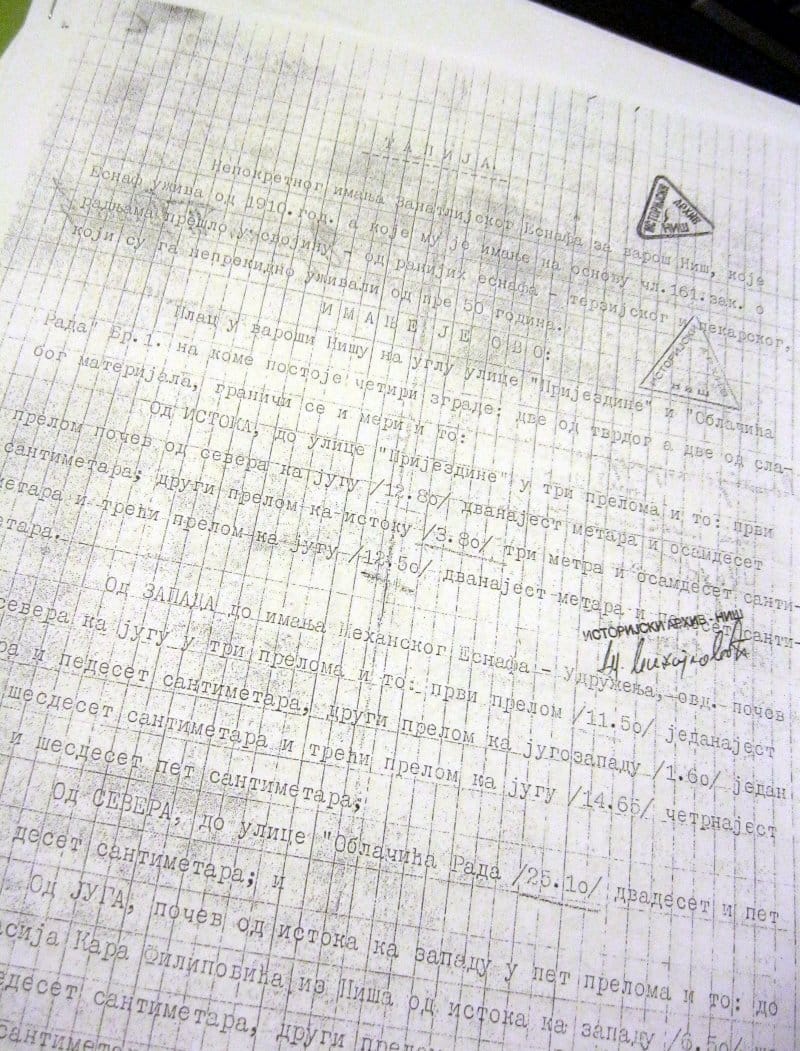 Т А П И Ј А.
Непокретног имања Занатлијског Еснафа за варош Ниш, које
Еснаф ужива од 1910.год. а које му је имање на основу чл.161.зак. о
радњама прешло у својину - од ранијих еснафа - терзијског и пекарског,
који су га непрекидно уживали од пре 50 година.
И М А Њ Е Ј Е О В О:
Плац у вароши Нишу на углу улице "Пријездине" и "Облачића
Рада" Бр.1. на коме постоје четири зграде: две од тврдог а две од сла-
бог материјала, граничи се и мери и то:
Од ИСТОКА, до улице "Пријездине" у три прелома и то: први
прелом почев од севера ка југу /12.80/ дванајест метара и осамдесет
сантиметара; други прелом ка истоку /3.80/ три метра и осамдесет санти-
метара и трећи прелом ка југу /12.50/ дванајест метара и педесет санти-
етара.
Од ЗАПАДА до имања Механског Еснафа - удружења, овд. почев
севера ка југу у три прелома и то: први прелом /11.50/ једанајест
ра и педесет сантиметара, други прелом ка југозападу /1.60/ један
шесдесет сантиметара и трећи прелом ка југу /14.65/ четрнајест
и шесдесет пет сантиметара;
Од СЕВЕРА, до улице "Облачића Рада /25.10/ двадесет и пет
десет сантиметара; и
Од ЈУГА, почев од истока ка западу у пет прелома и то: до
асија Кара Филиповића из Ниша од истока ка западу /6.50/
едесет сантиметара, други прелом
сантиметар
ИСТОРИЈСКИ АРХИВ НИШ
ИСТОРИЈСКИ АРХИВ НИШ
ИСТОРИЈСКИ АРХИВ-НИШ